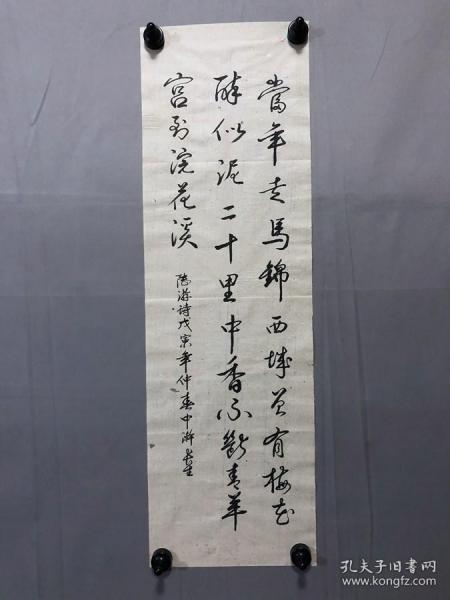 當年走馬錦西城曾有梅花
醉似泥二十里中香不斷青羊
宮到浣花溪
陸游詩戊寅年仲春中
孔夫子旧书网
www.kongfz.com